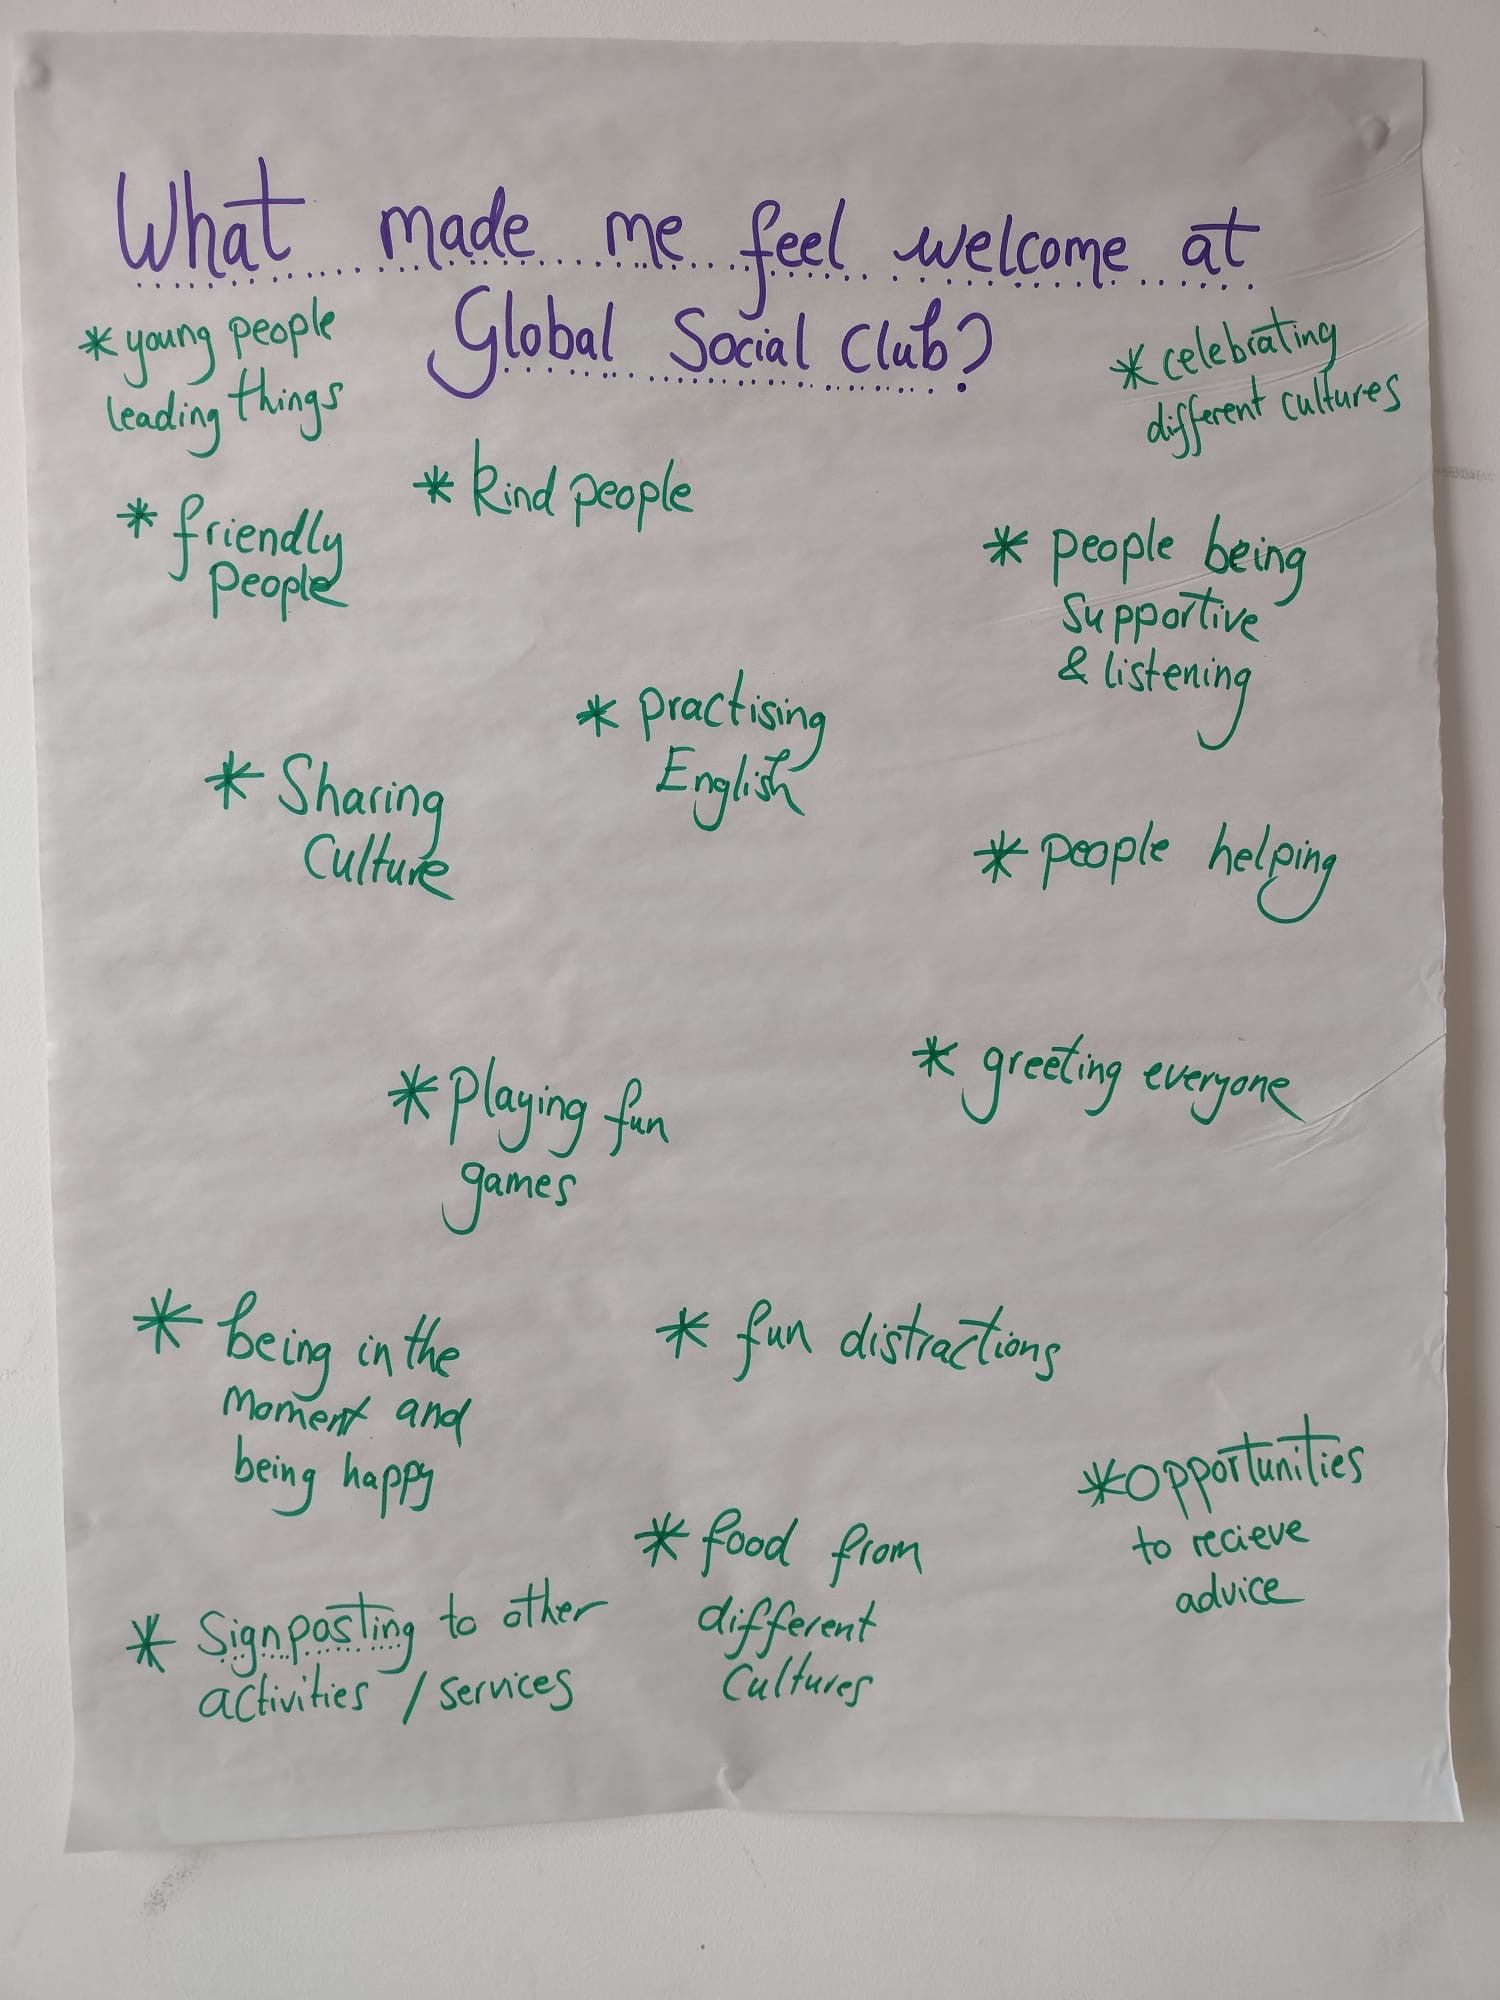 What made me feel welcome at
Global Social Club?
* young people
leading things
* celebrating
different cultures
* kind people
* friendly
people
* people being
supportive
& listening
* practising
English
* Sharing
Culture
* people helping
* playing fun
games
* greeting everyone
* being in the
moment and
being happy
* fun distractions
* opportunities
to recieve
advice
* food from
different
cultures
* Signposting to other
activities / services